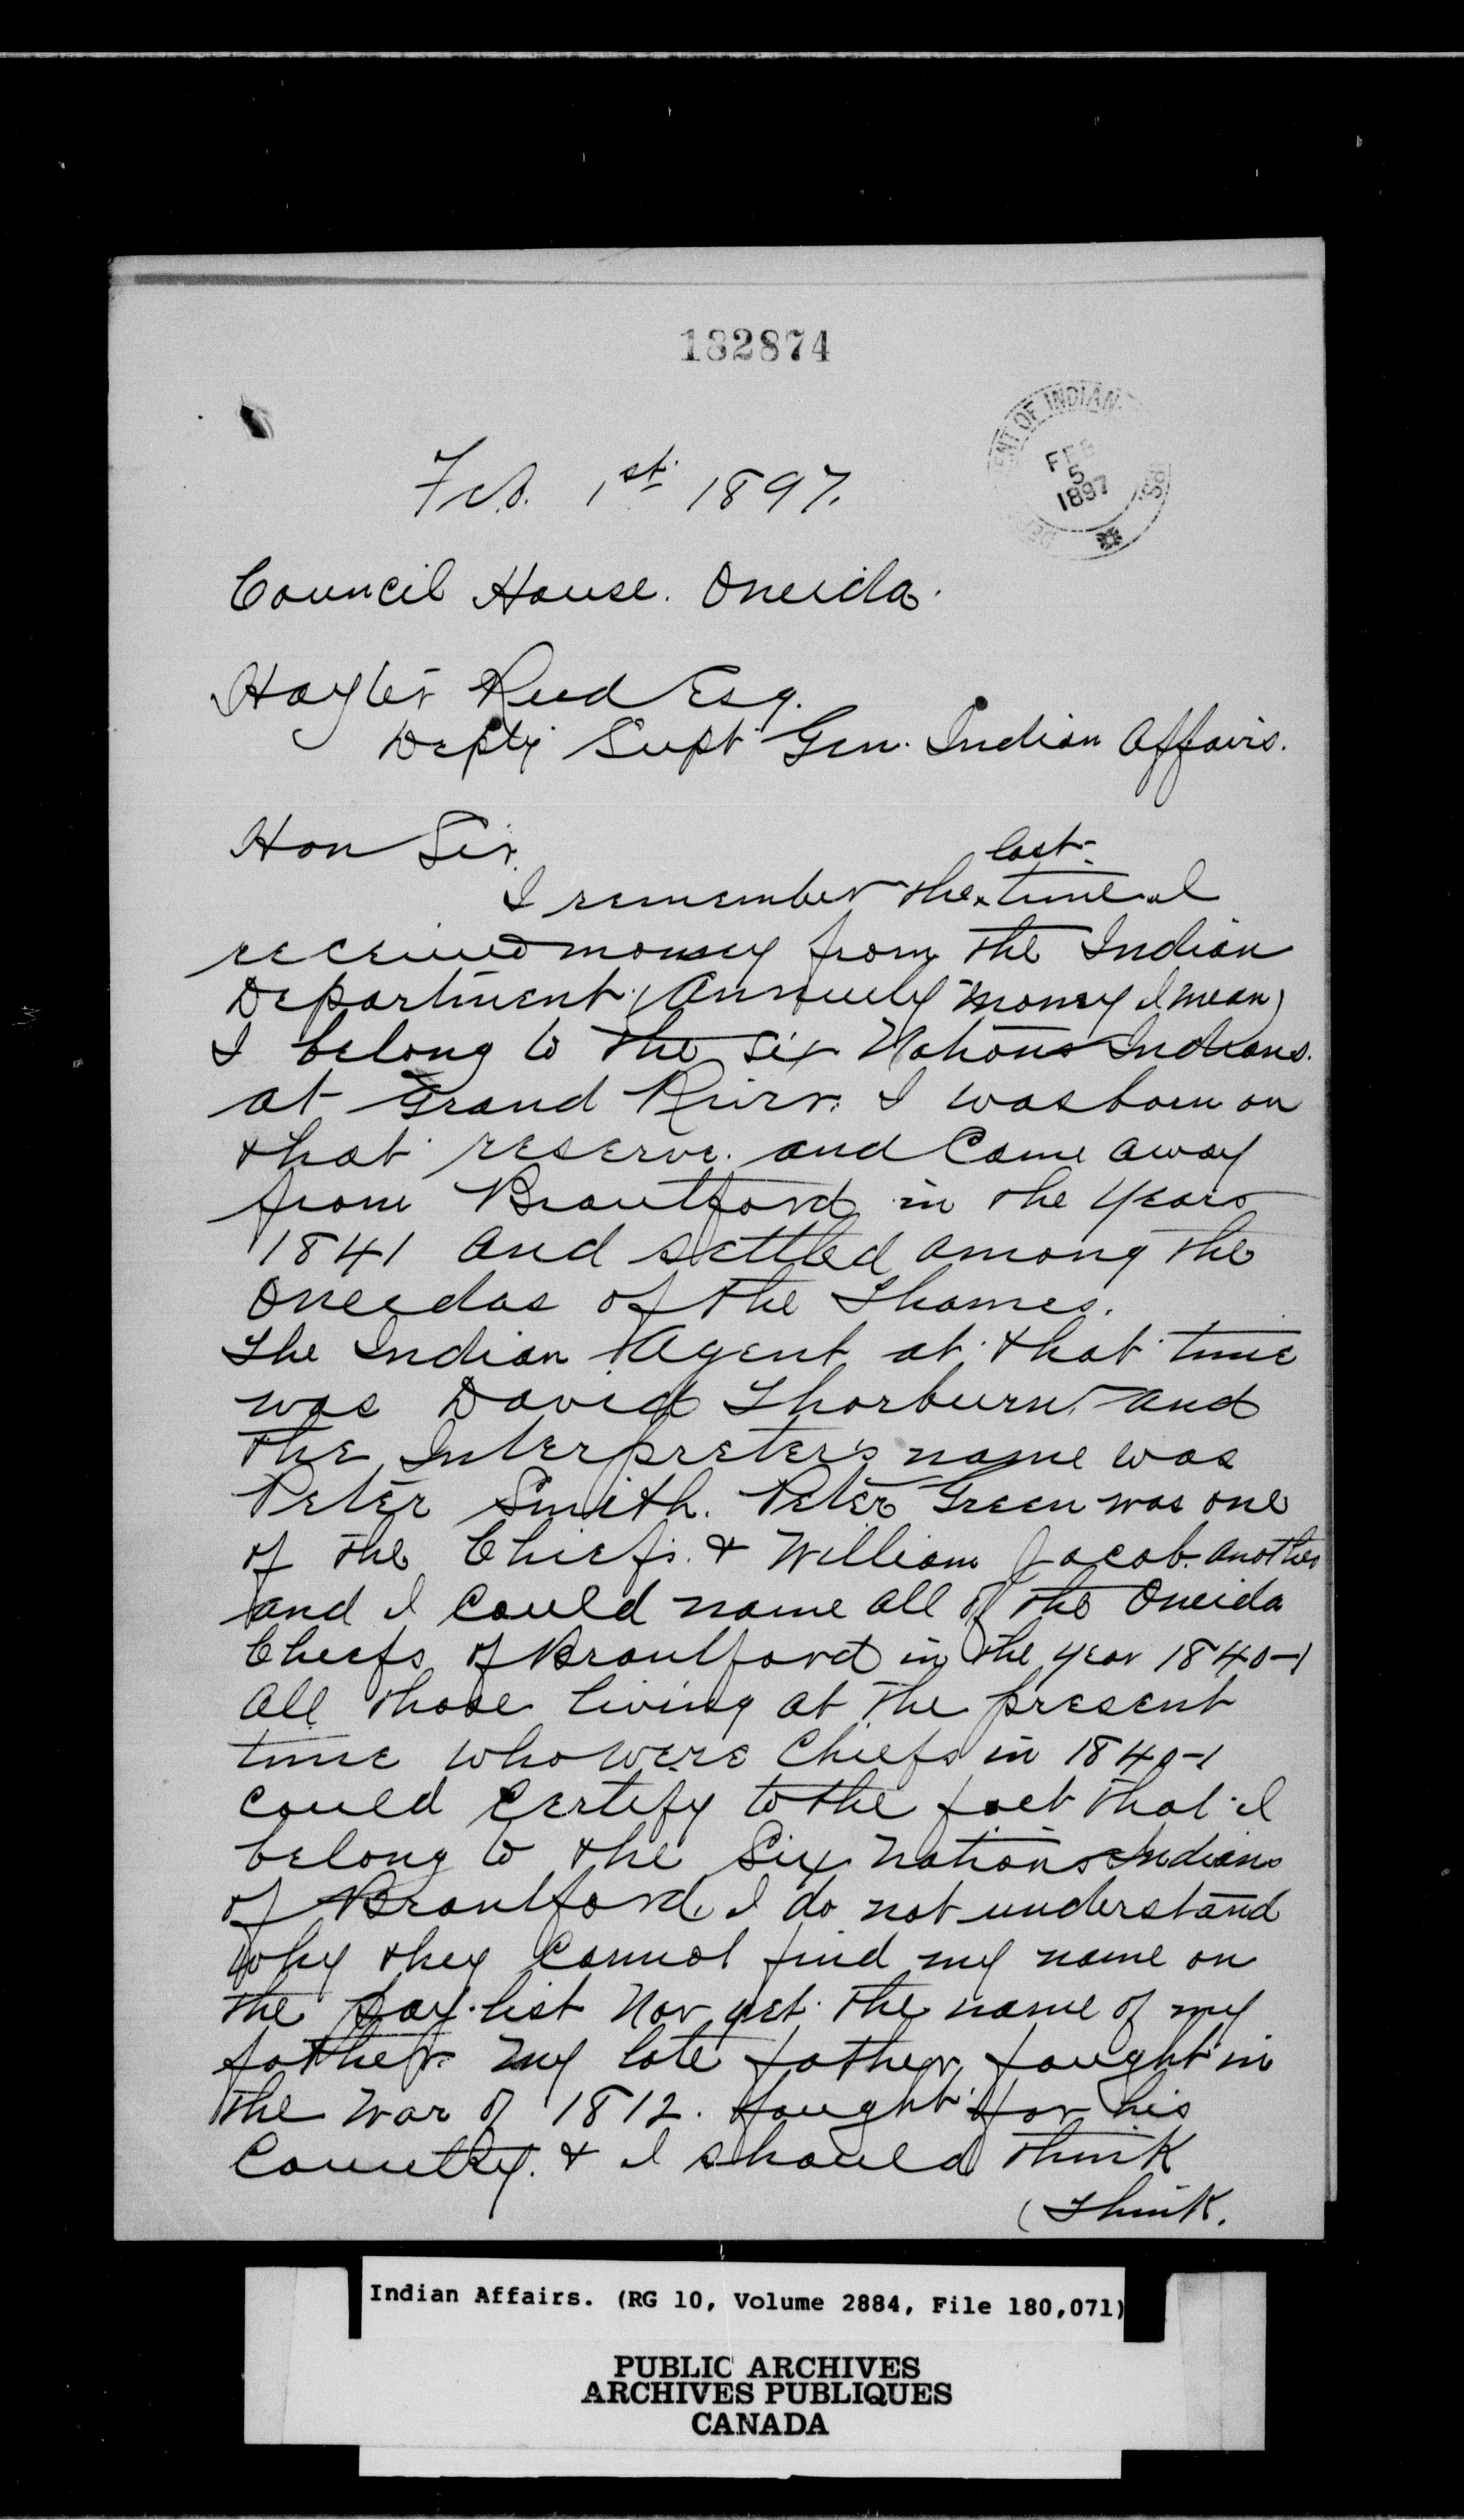 182874
DEPARTMENT OF INDIAN
FEB
5
1897
Feb. 1st 1897.
Council House. Oneida.
Hayter Reed Esq.
Depty Supt Gen. Indian Affairs.
Hon Sir
last
I remember the time I
received money from the Indian
Department (Annuity money I mean)
I belong to the Six Nations Indians.
at Grand River. I was born on
that reserve. and Came away
from Brantford in the Years
1841 and settled among the
Oneidas of the Thames.
The Indian Agent at that time
was David Thorburn and
the Interpreter's name was
Peter Smith. Peter Green was one
of the Chiefs. & William Jacob. another
and I could name all of the Oneida
Chiefs of Brantford in the year 1840-1
all those living at the present
time who were Chiefs in 1840-1
could Certify to the fact that I
belong to the Six Nations Indians
of Brantford. I do not understand
why they Cannot find my name on
the Pay-list Nor yet the name of my
father. My late father, fought in
the War of 1812. fought for his
Country. & I should think
(Think.
Indian Affairs. (RG 10, Volume 2884, File 180,071)
PUBLIC ARCHIVES
ARCHIVES PUBLIQUES
CANADA